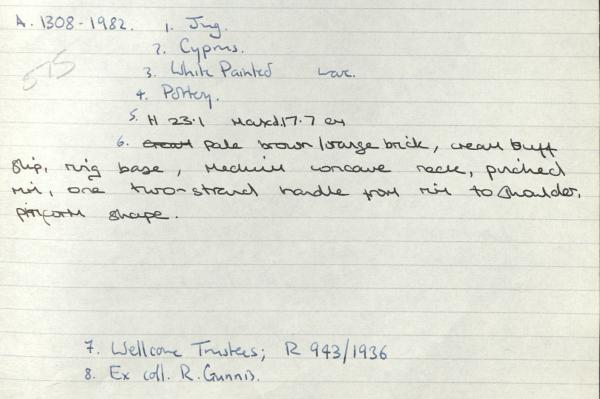 A. 1308-1982. 1. Jug.
2. Cyprus.
3. White Painted ware.
4. Pottery.
575
5. H 23.1 Maxd.17.7 cm
6. cream pale brown/orange brick, cream buff
slip, ring base, medium concave neck, pinched
rim, one two-strand handle from rim to shoulder,
piriform shape.
7. Wellcome Trustees; R 943/1936
8. Ex coll. R. Gunnis.